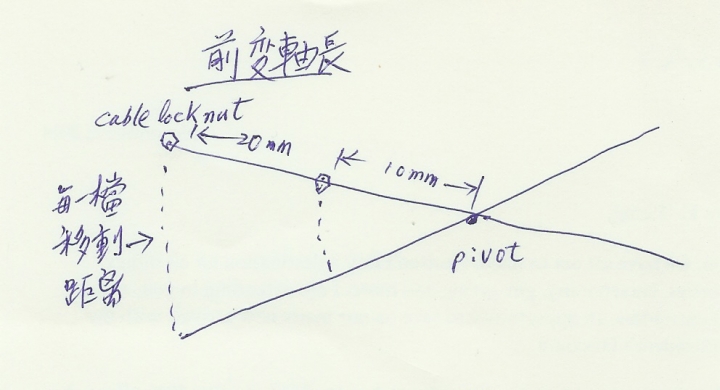 前变軸長
cable lock nut
20mm
10mm
每一檔
移動
距离
pivot